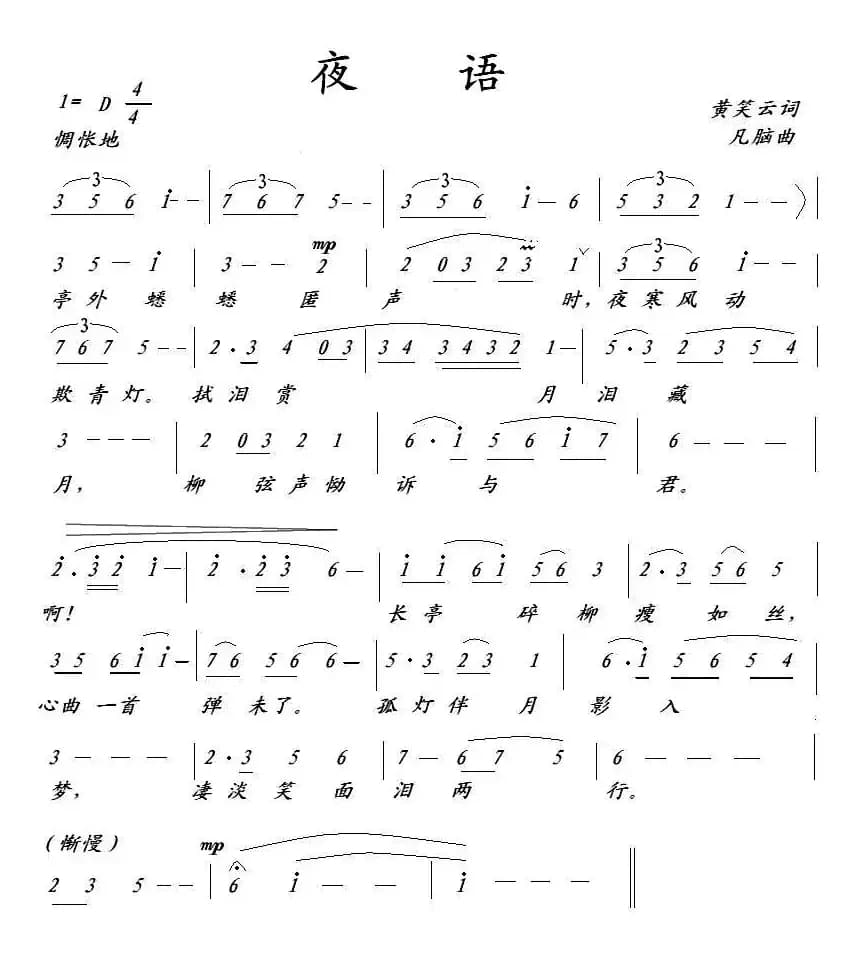 夜 语
1= D 4/4
黄笑云词
惆怅地
凡脑曲
3 3 3 3
3 5 6 i - - | 7 6 7 5 - - | 3 5 6 i — 6 | 5 3 2 1 — — |
mp
3 5 — i | 3 — — 2 | 2 03 23 1 ∨ | 3 5 6 i — — |
亭 外 蟋 蟋 匿 声 时，夜 寒 风 动
7 6 7 5 - - | 2 · 3 4 03 | 34 3432 1 — | 5 · 3 2 3 5 4 |
欺 青 灯。 拭 泪 赏 月 泪 藏
3 — — — | 2 03 2 1 | 6 · i 5 6 i 7 | 6 — — — |
月， 柳 弦 声 恸 诉 与 君。
2̇ · 3̇2̇ i — | 2̇ · 2̇3̇ 6 — | i i 6i 56 3 | 2 · 3 56 5 |
啊！ 长 亭 碎 柳 瘦 如 丝，
35 6i i — | 76 56 6 — | 5 · 3 23 1 | 6 · i 5 6 5 4 |
心 曲 一 首 弹 未 了。 孤 灯 伴 月 影 入
3 — — — | 2 · 3 5 6 | 7 — 67 5 | 6 — — — |
梦， 凄 淡 笑 面 泪 两 行。
（惭慢） mp
2 3 5 — — | 6 i — — | i — — — ‖